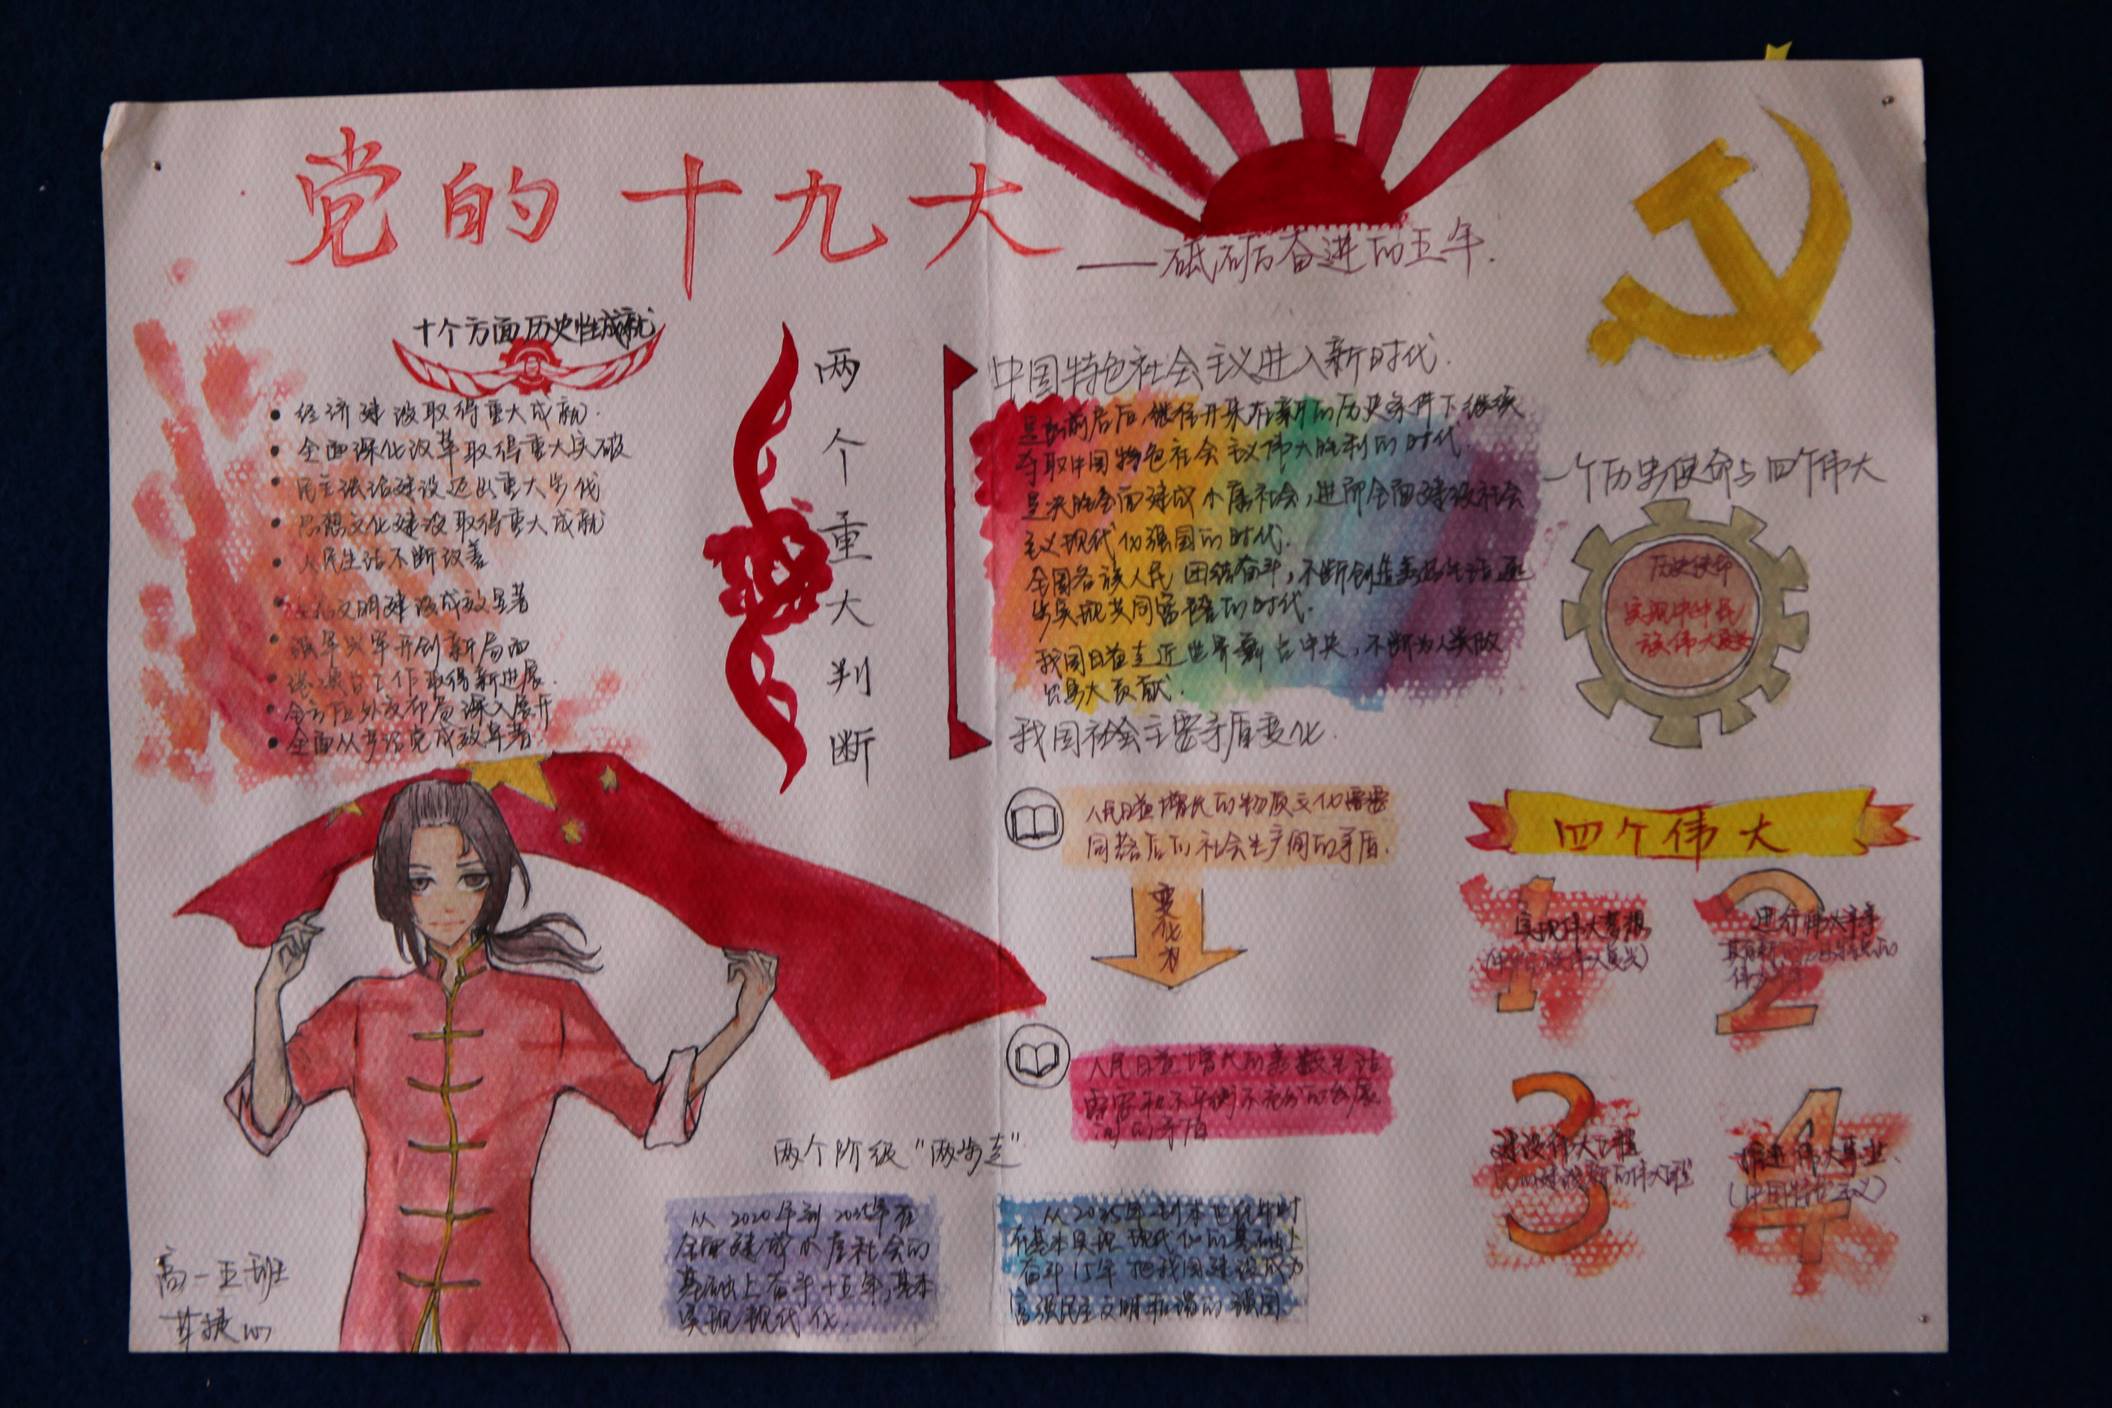 党的十九大
——砥砺奋进的五年.
十个方面历史性成就
经济建设取得重大成就.
全面深化改革取得重大突破
民主法治建设迈出重大步伐
思想文化建设取得重大成就
人民生活不断改善
生态文明建设成效显著
强军兴军开创新局面
港澳台工作取得新进展.
全方位外交布局深入展开
全面从严治党成效卓著.
两个重大判断
中国特色社会主义进入新时代.
是承前启后,继往开来在新的历史条件下继续
夺取中国特色社会主义伟大胜利的时代
是决胜全面建成小康社会,进而全面建设社会
主义现代化强国的时代.
全国各族人民团结奋斗,不断创造美好生活,逐
步实现共同富裕的时代.
我国日益走近世界舞台中央,不断为人类做
出更大贡献.
我国社会主要矛盾变化.
人民日益增长的物质文化需要
同落后的社会生产间的矛盾.
变化为
人民日益增长的美好生活
需要和不平衡不充分的发展
间的矛盾
一个历史使命与四个伟大
历史使命
实现中华民
族伟大复兴
四个伟大
1
实现伟大梦想
2
进行伟大斗争
3
建设伟大工程
4
推进伟大事业.
(中国特色主义)
两个阶级“两步走”
从2020年到2035年在
全面建成小康社会的
基础上奋斗十五年,基本
实现现代化.
在基本实现现代化的基础上
奋斗15年把我国建设成为
高一五班